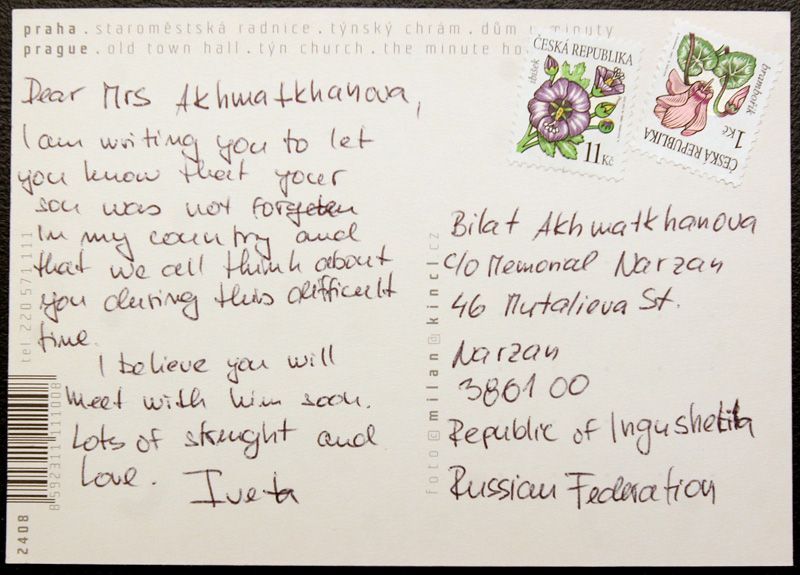 praha . staroměstská radnice . týnský chrám . dům minuty
prague . old town hall . týn church . the minute ho
ČESKÁ REPUBLIKA
ibišek
11 Kč
brambořík
1 Kč
ČESKÁ REPUBLIKA
Dear Mrs Akhmatkhanova,
I am writing you to let
you know that your
son was not forgoten
in my country and
that we all think about
you during this difficult
time.
I believe you will
meet with him soon.
Lots of strenght and
Love. Iveta
Bilat Akhmatkhanova
c/o Memorial Narzan
46 Mutalieva St.
Narzan
386100
Republic of Ingushetia
Russian Federation
tel. 220 571 111
8 592311 111008
2408
foto © milan @ kincl.cz